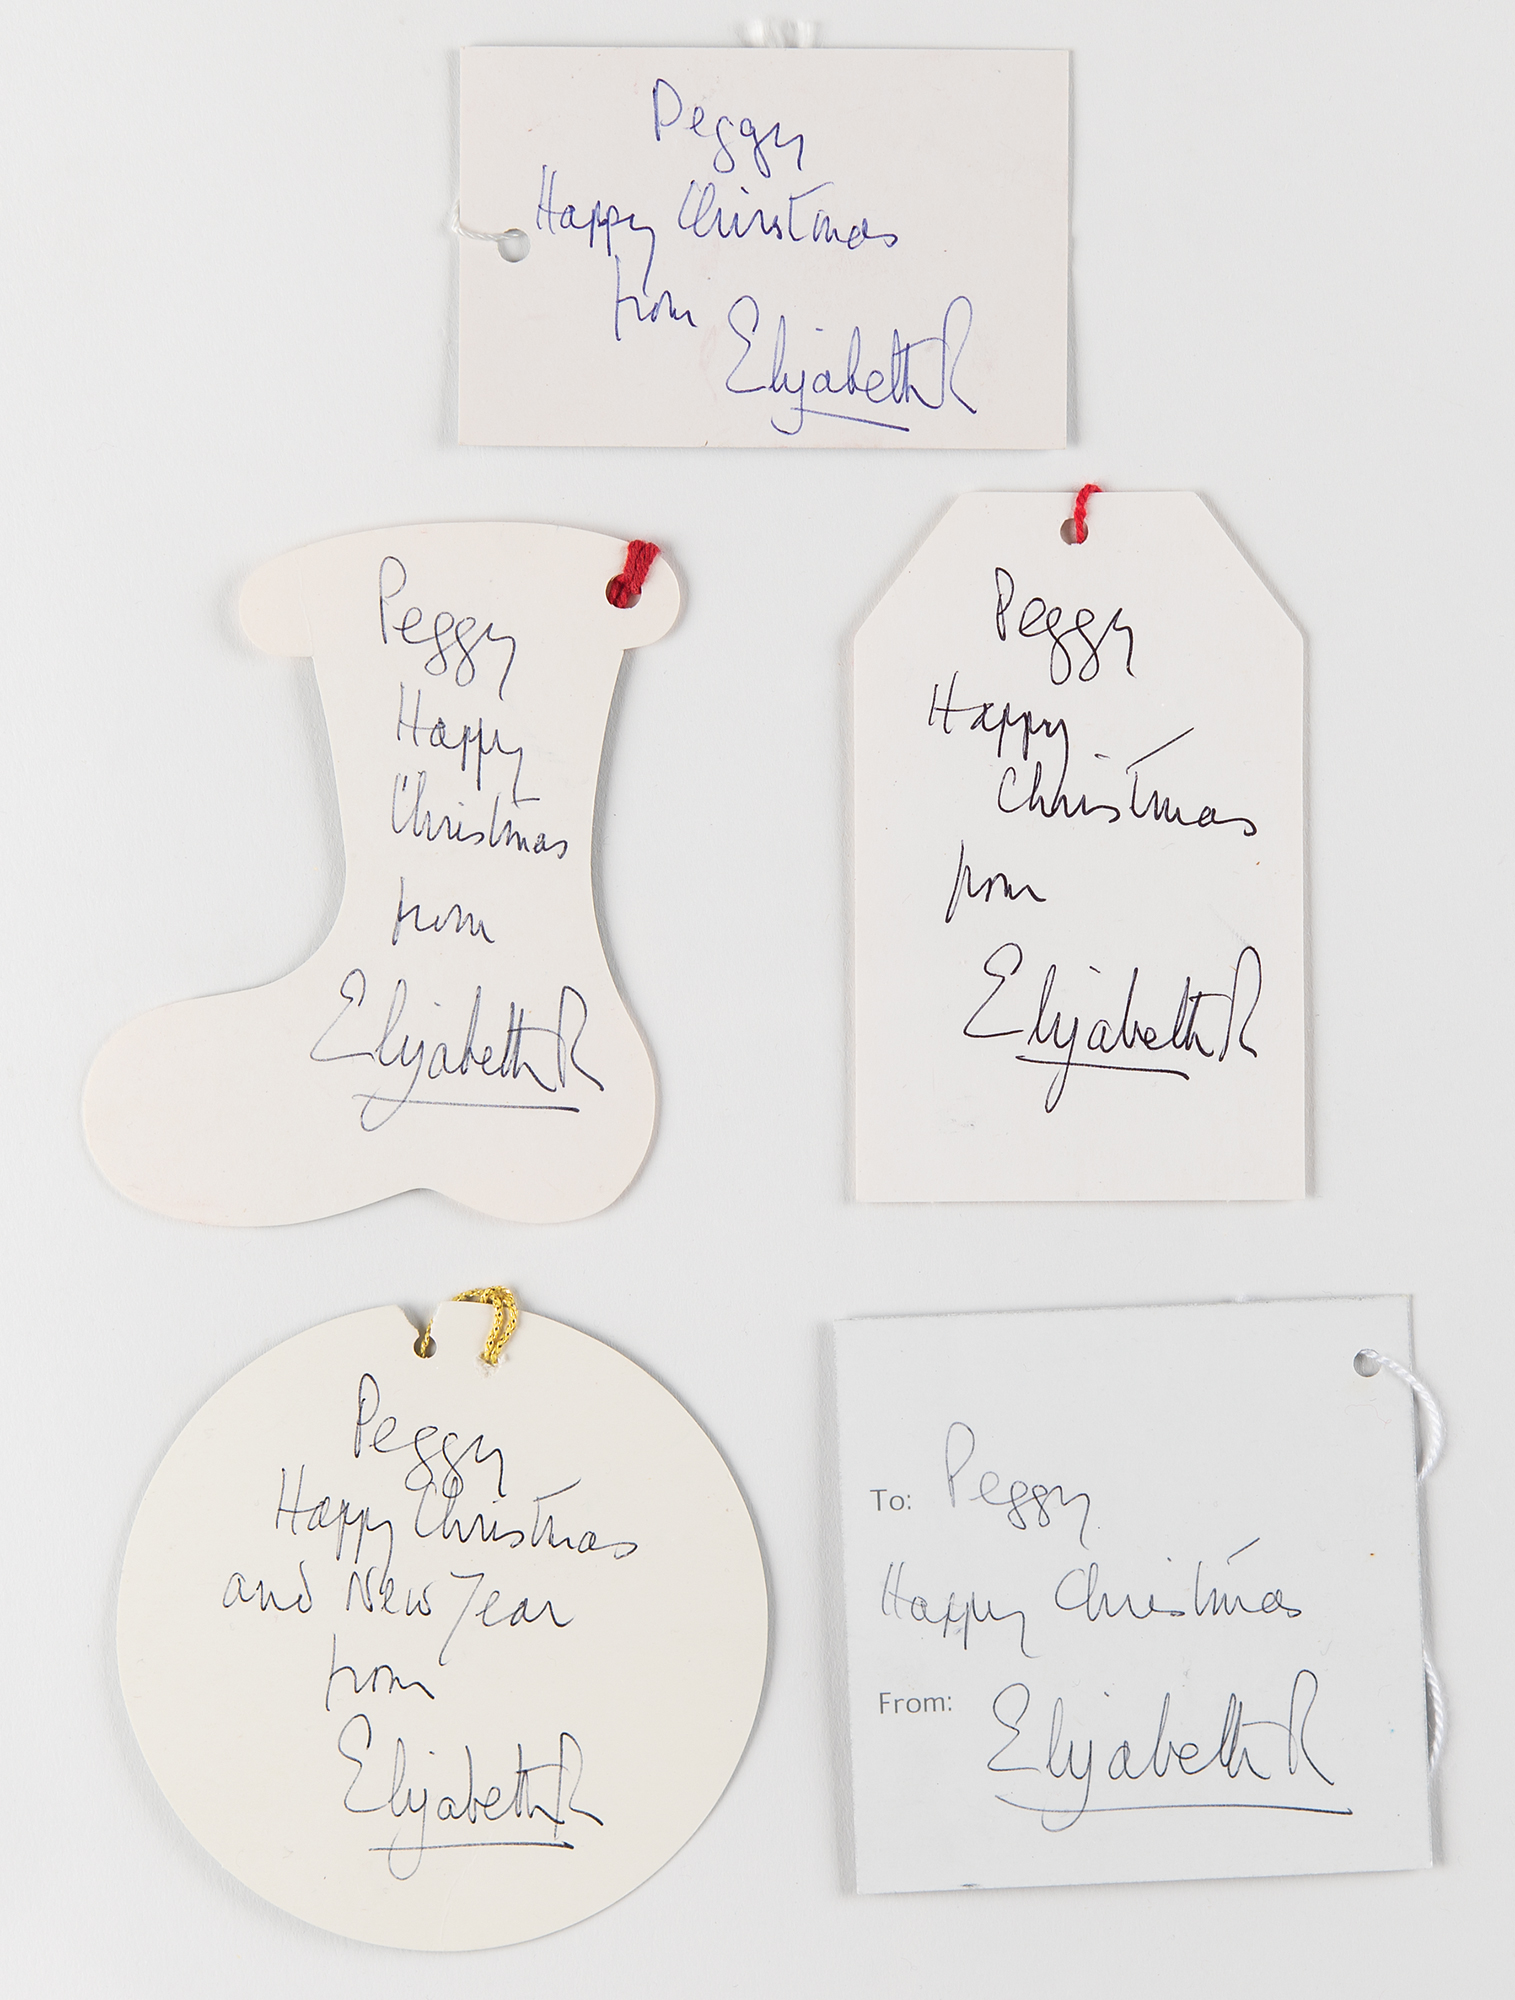 Peggy
Happy Christmas
from
Elizabeth R
Peggy
Happy
Christmas
from
Elizabeth R
Peggy
Happy
Christmas
from
Elizabeth R
Peggy
Happy Christmas
and New Year
from
Elizabeth R
To: Peggy
Happy Christmas
From: Elizabeth R